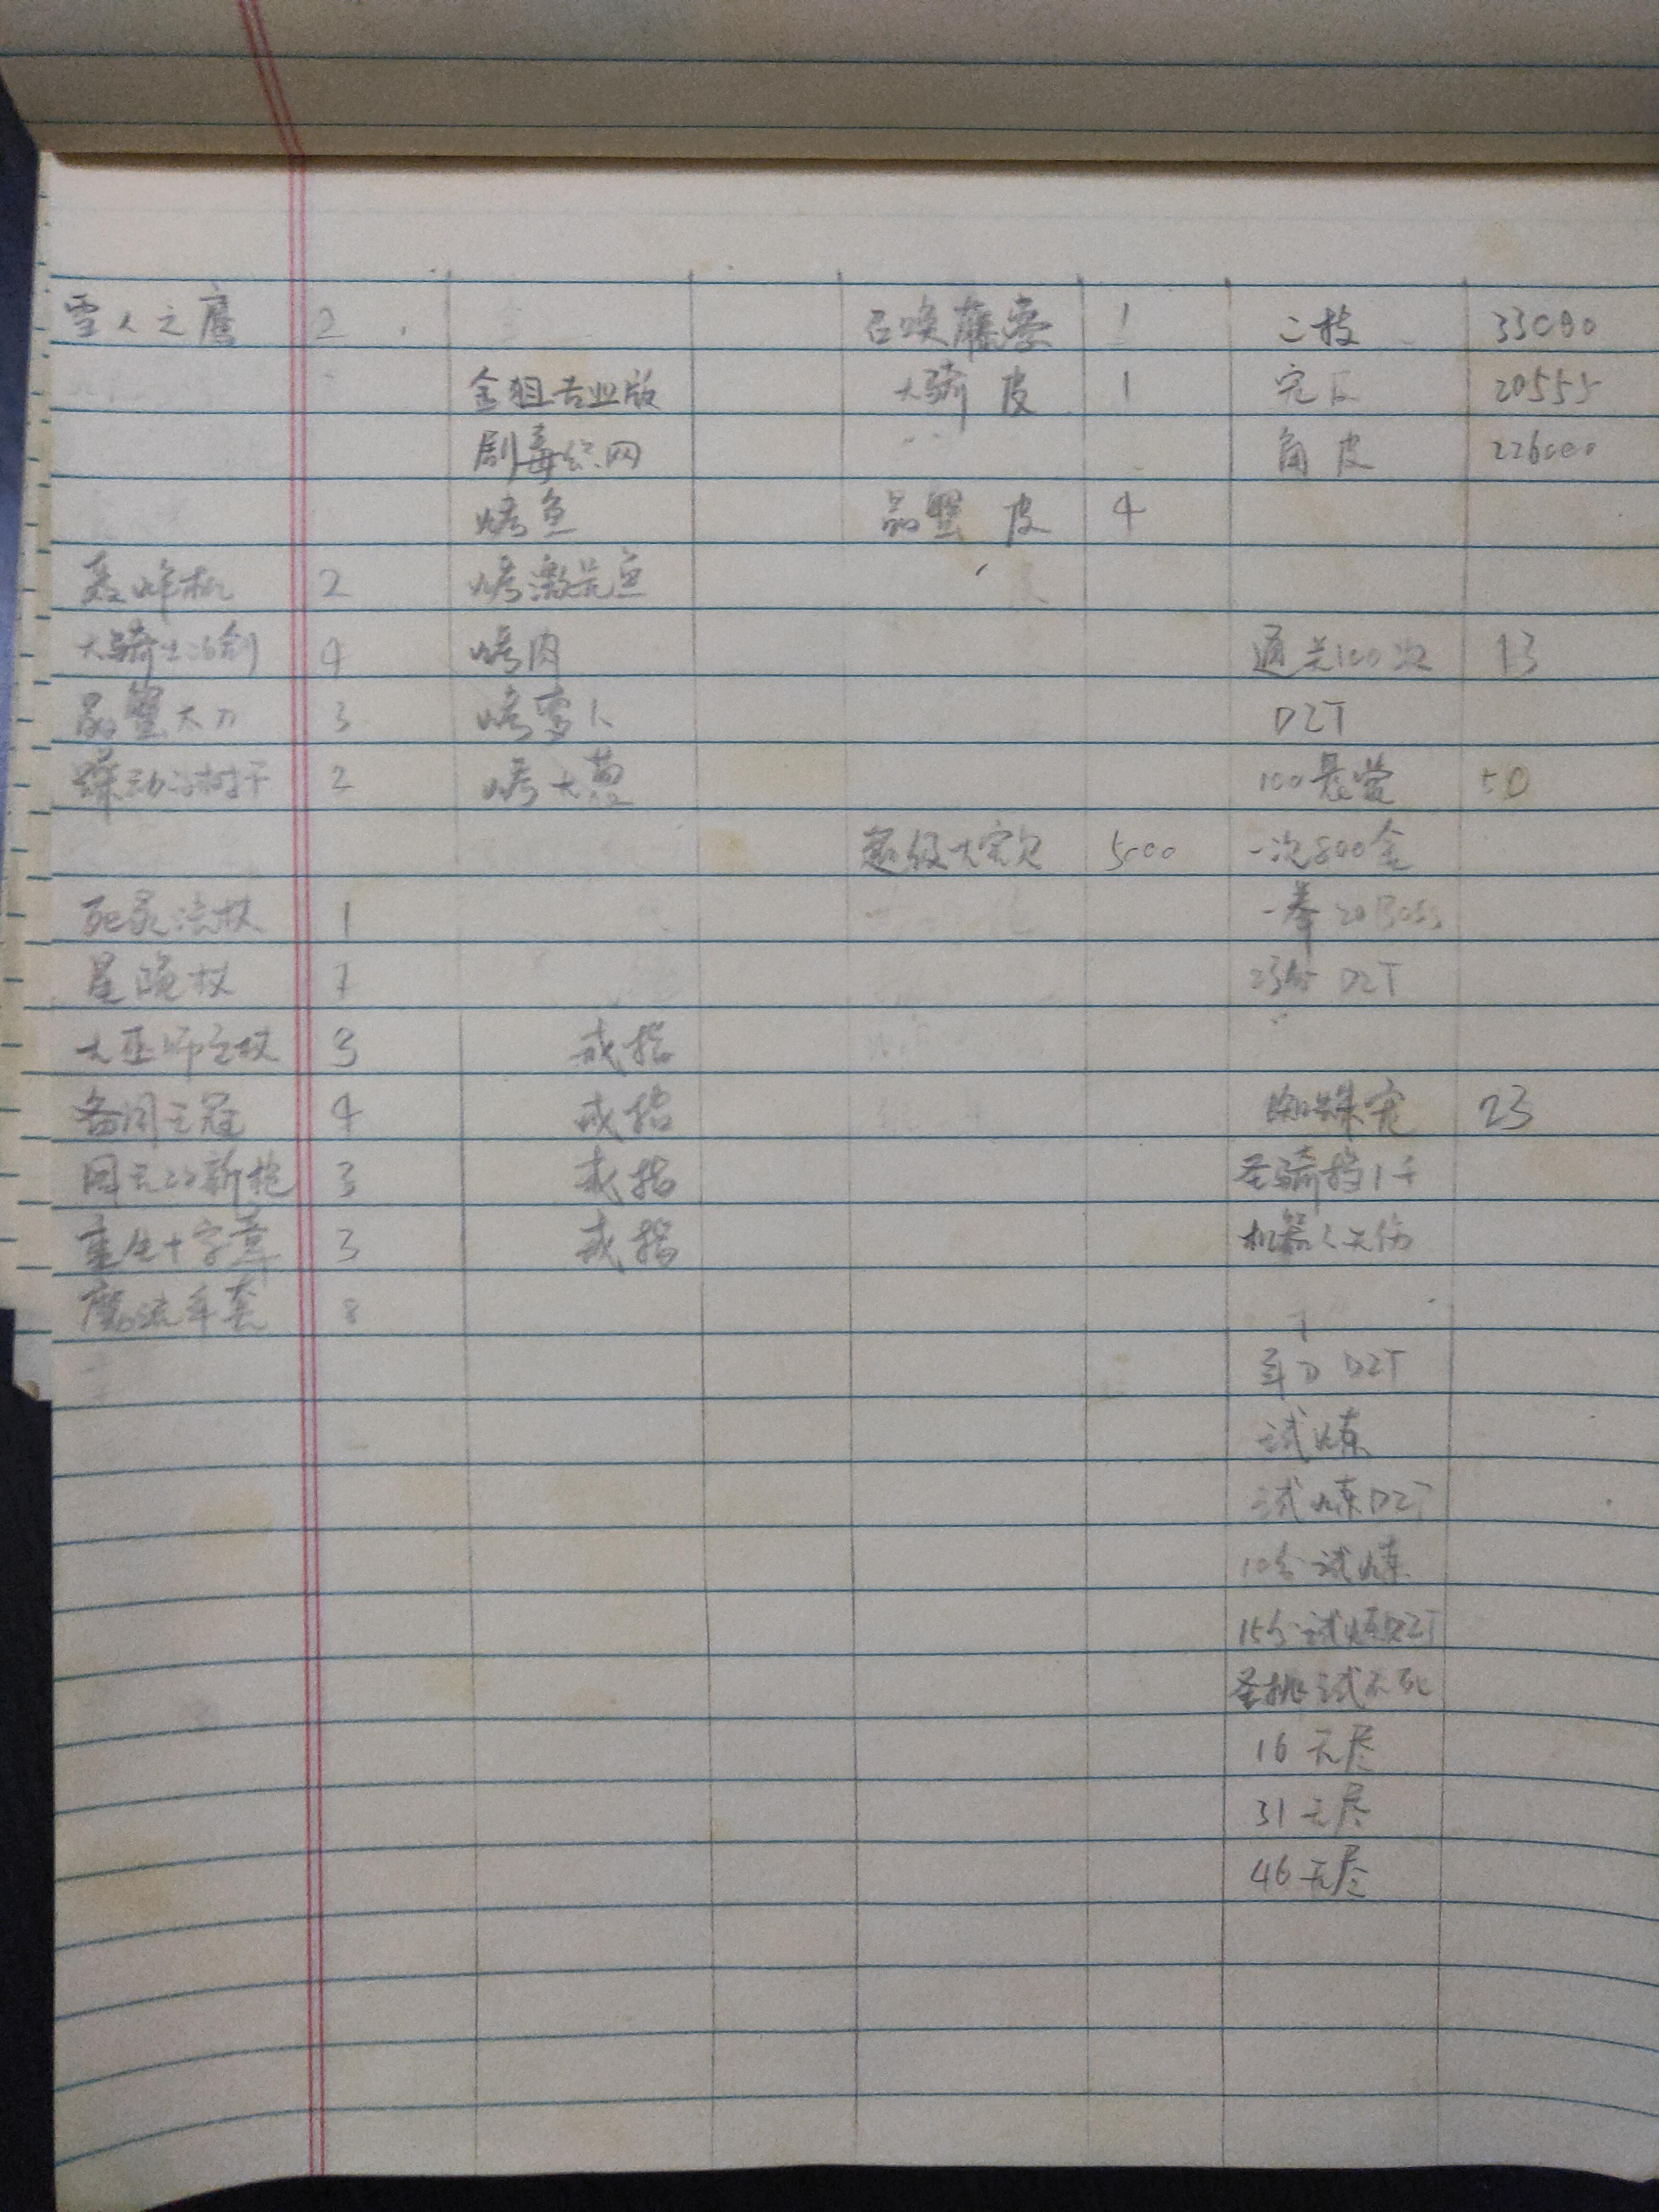 雪人之鹰 2 召唤藤蔓 1 二技 33000
金狙专业版 大骑 皮 1 完 20555
剧毒织网 角皮 226000
烤鱼 晶蟹 皮 4
轰炸机 2 烤激光鱼
大骑士的剑 4 烤肉 通关100次 13
晶蟹大刀 3 烤萝卜 DZT
躁动的树干 2 烤大葱 100悬赏 50
超级大宝 5000 一次800金
死灵法杖 1 一拳20Boss
星陨杖 7 25分 DZT
大巫师之杖 3 戒指
备用王冠 4 戒指 蜘蛛宠 23
国王的新枪 3 戒指 圣骑挡1千
重生十字章 3 戒指 机器人无伤
魔法手套 8
军刀 DZT
试炼
试炼DZT
10分试炼
15分试炼DZT
圣挑试不死
16无尽
31无尽
46无尽